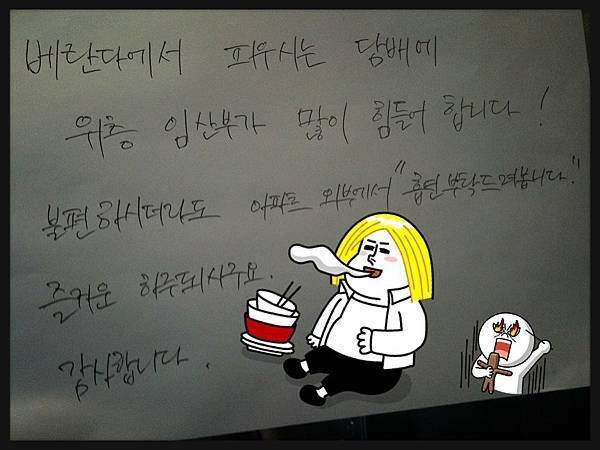 베란다에서 피우시는 담배에
위층 임산부가 많이 힘들어 합니다!
불편하시더라도 아파트 외부에서 "흡연 부탁드려봅니다."
즐거운 하루되시구요.
감사합니다.